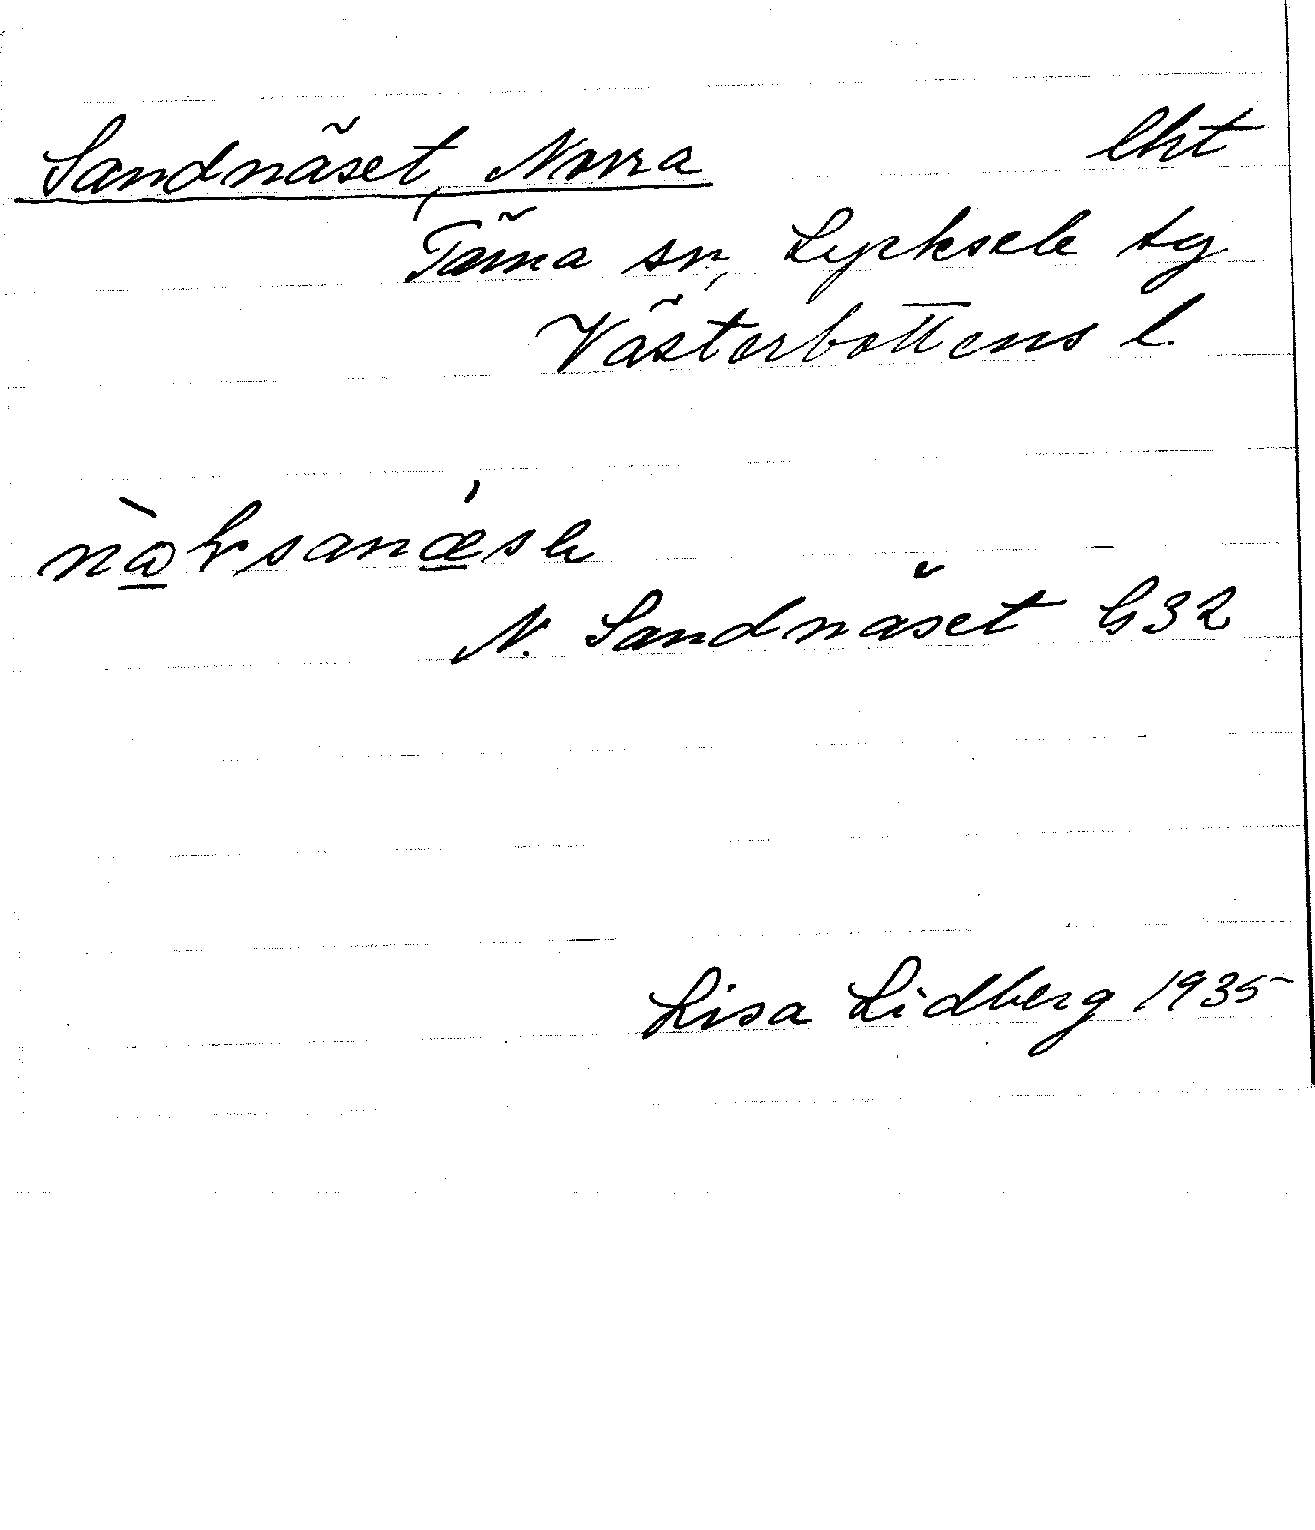 Sandnäset, Norra lht
Tärna sn, Lycksele tg
Västerbottens l.
N. Sandnäset G32
Lisa Lidberg 1935